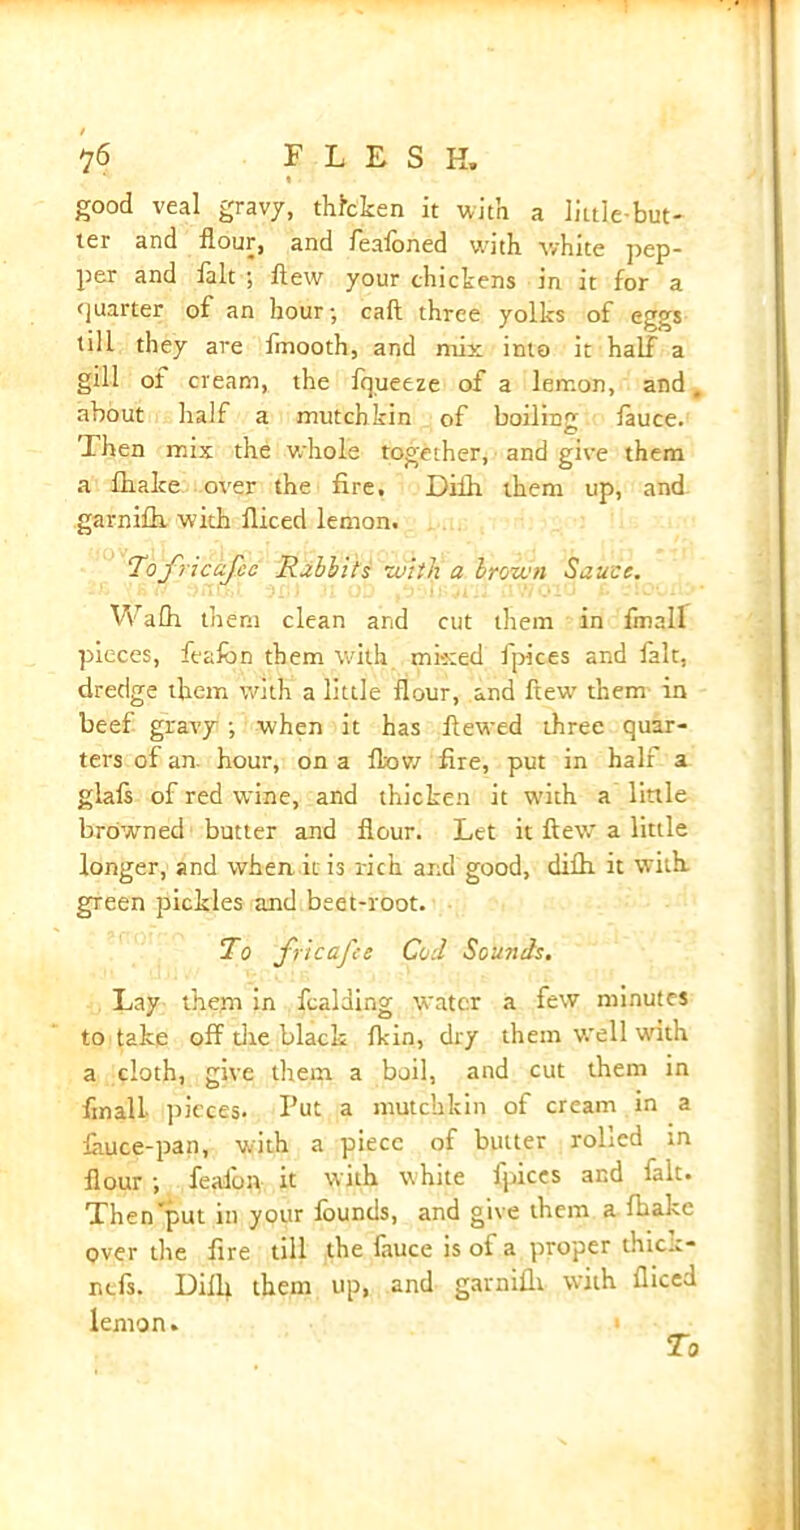 76 FLESH.
good veal gravy, thicken it with a little but-
ter and flour, and ſeaſoned with white pep-
per and ſalt; ſtew your chickens in it for a
quarter of an hour; caſt three yolks of eggs
till they are ſmooth, and mix into it half a
gill of cream, the ſqueeze of a lemon, and
about half a mutchkin of boiling ſauce.
Then mix the whole together, and give them
a ſhake over the fire. Diſh them up, and
garniſh with ſliced lemon.
To fricaſee Rabbits with a brown Sauce.
Waſh them clean and cut them in ſmall
pieces, ſeaſon them with mixed ſpices and ſalt,
dredge them with a little flour, and ſtew them in
beef gravy; when it has ſtewed three quar-
ters of an hour, on a ſlow fire, put in half a
glaſs of red wine, and thicken it with a little
browned butter and flour. Let it ſtew a little
longer, and when it is rich and good, diſh it with
green pickles and beet-root.
To fricaſee Cod Sounds.
Lay them in ſcalding water a few minutes
to take off the black ſkin, dry them well with
a cloth, give them a boil, and cut them in
ſmall pieces. Put a mutchkin of cream in a
ſauce-pan, with a piece of butter rolled in
flour; ſeaſon it with white ſpices and ſalt.
Then put in your ſounds, and give them a ſhake
over the fire till the ſauce is of a proper thick-
neſs. Diſh them up, and garniſh with ſliced
lemon.
To